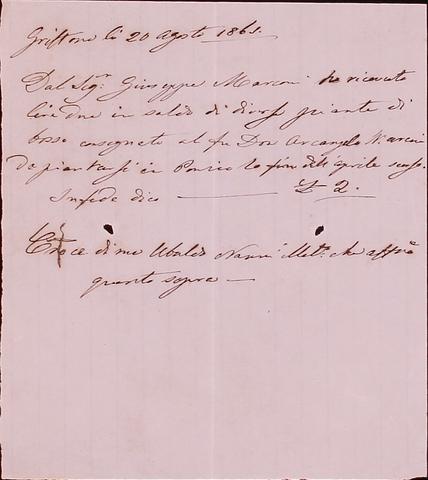 Griffone li 20 Agosto 1861.
Dal Sigr. Giuseppe Marconi ho ricevuto
lire due in saldo di diverse piante di
bosso consegnate al fu Don Arcangelo Marconi
da piantarsi in fin dell aprile scorso.
In fede dico — £ 2.
Croce di me Ubaldo Nanni che afferma
quanto sopra —